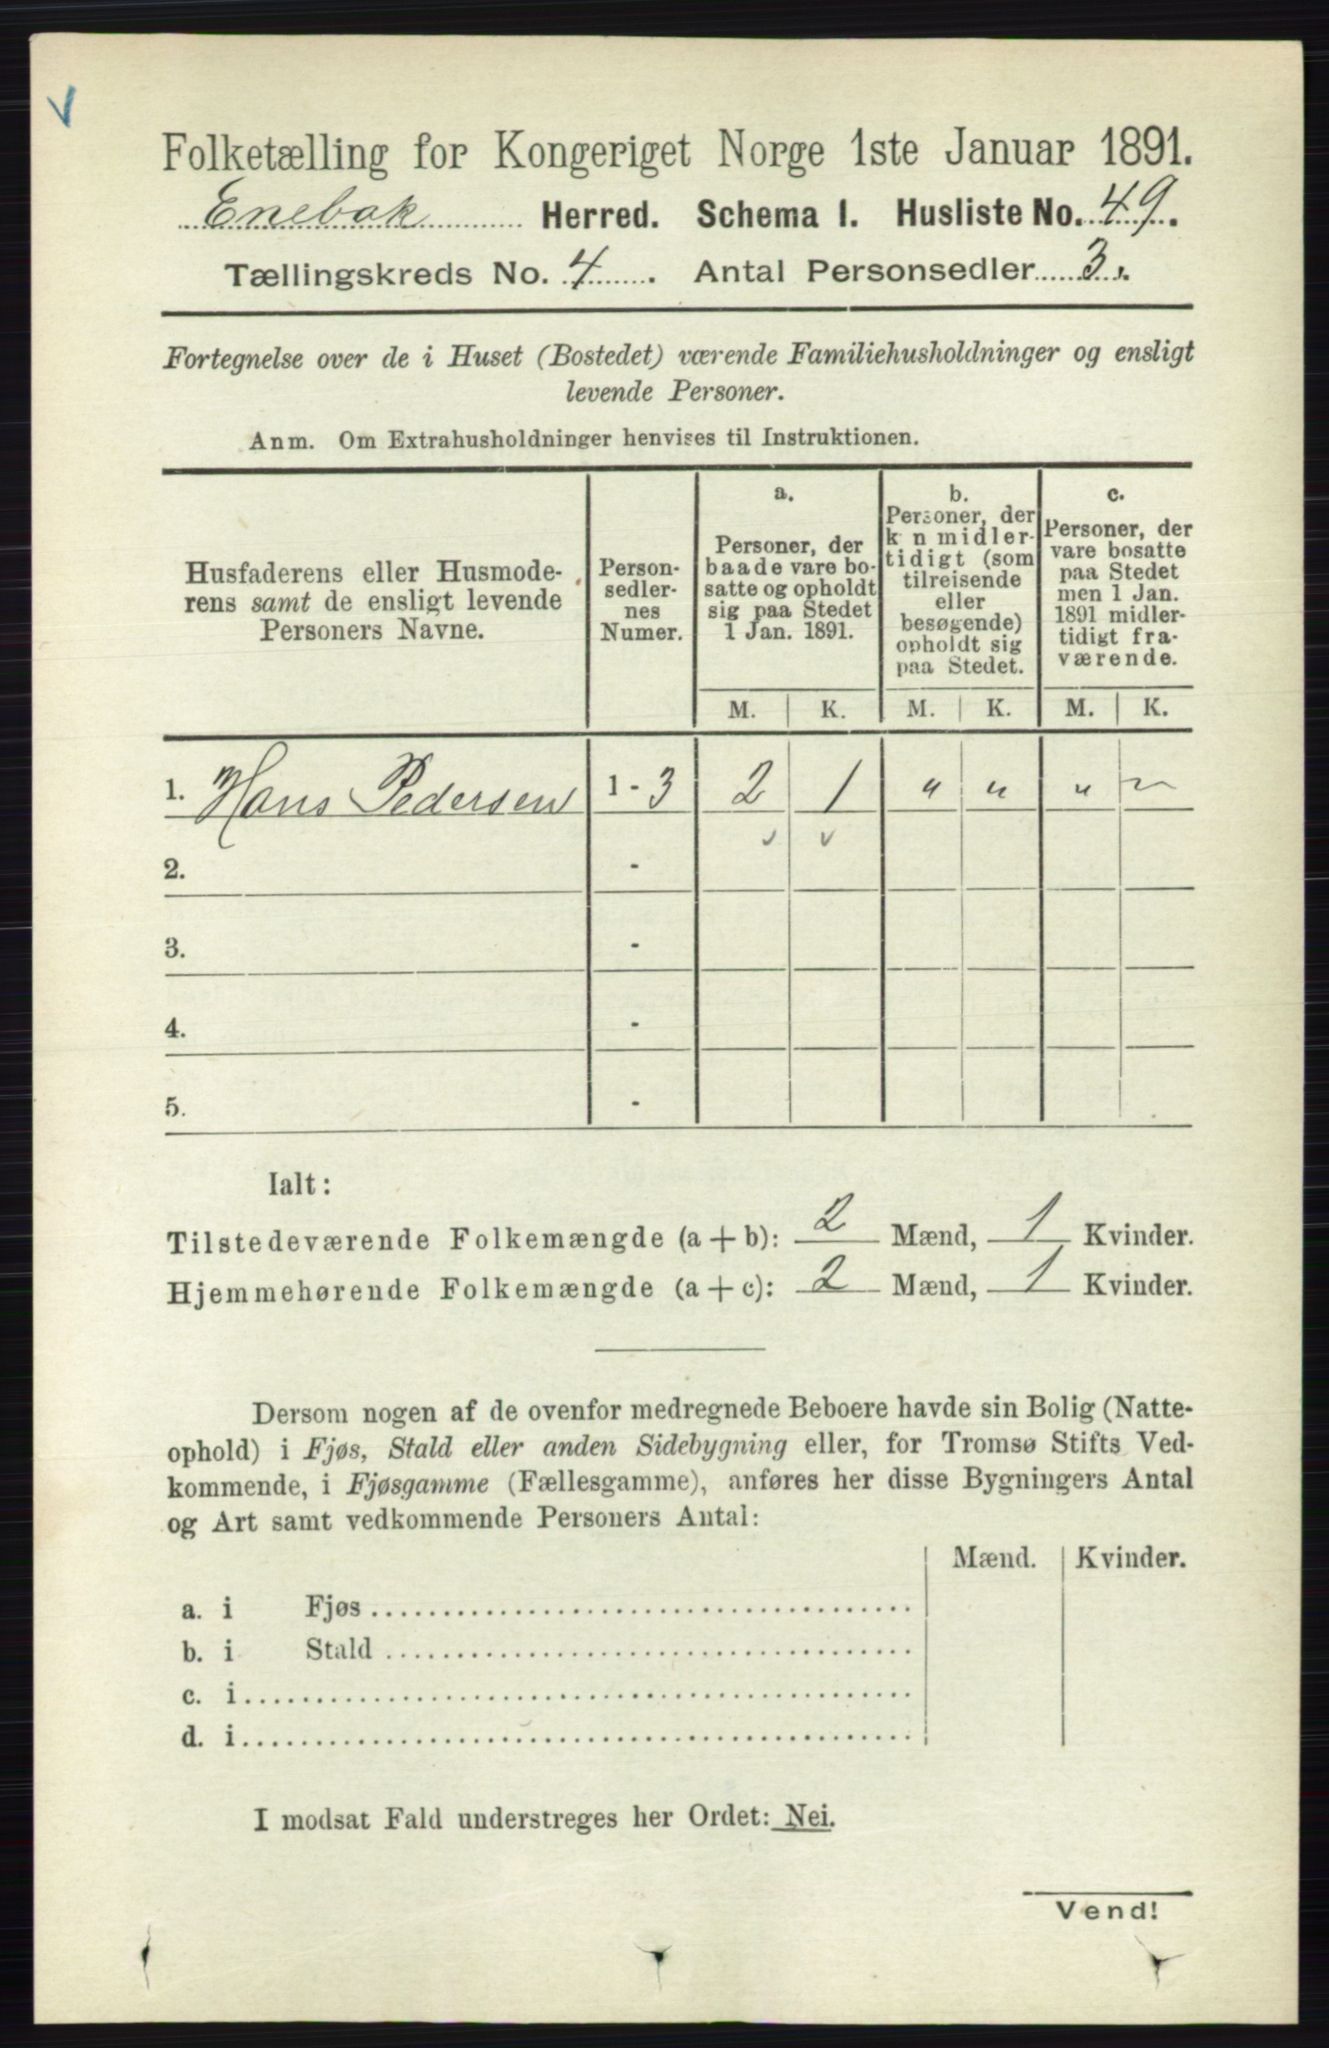 Folketælling for Kongeriget Norge 1ste Januar 1891.
Enebak Herred. Schema I. Husliste No. 49.
Tællingskreds No. 4. Antal Personsedler 3.
Fortegnelse over de i Huset (Bostedet) værende Familiehusholdninger og ensligt
levende Personer.
Anm. Om Extrahusholdninger henvises til Instruktionen.
Husfaderens eller Husmode-
rens samt de ensligt levende
Personers Navne.
Person-
sedler-
nes
Numer.
a.
Personer, der
baade vare bo-
satte og opholdt
sig paa Stedet
1 Jan. 1891.
b.
Personer, der
k n midler-
tidigt (som
tilreisende
eller
besøgende)
opholdt sig
paa Stedet.
c.
Personer, der
vare bosatte
paa Stedet
men 1 Jan.
1891 midler-
tidigt fra-
værende.
M. K. M. K. M. K.
1. Hans Pedersen 1 - 3 2 1 " " " "
2. -
3. -
4. -
5. -
Ialt:
Tilstedeværende Folkemængde (a + b): 2 Mænd, 1 Kvinder.
Hjemmehørende Folkemængde (a + c): 2 Mænd, 1 Kvinder.
Dersom nogen af de ovenfor medregnede Beboere havde sin Bolig (Natte-
ophold) i Fjøs, Stald eller anden Sidebygning eller, for Tromsø Stifts Ved-
kommende, i Fjøsgamme (Fællesgamme), anføres her disse Bygningers Antal
og Art samt vedkommende Personers Antal:
Mænd. Kvinder.
a. i Fjøs
b. i Stald
c. i
d. i
I modsat Fald understreges her Ordet: Nei.
Vend!